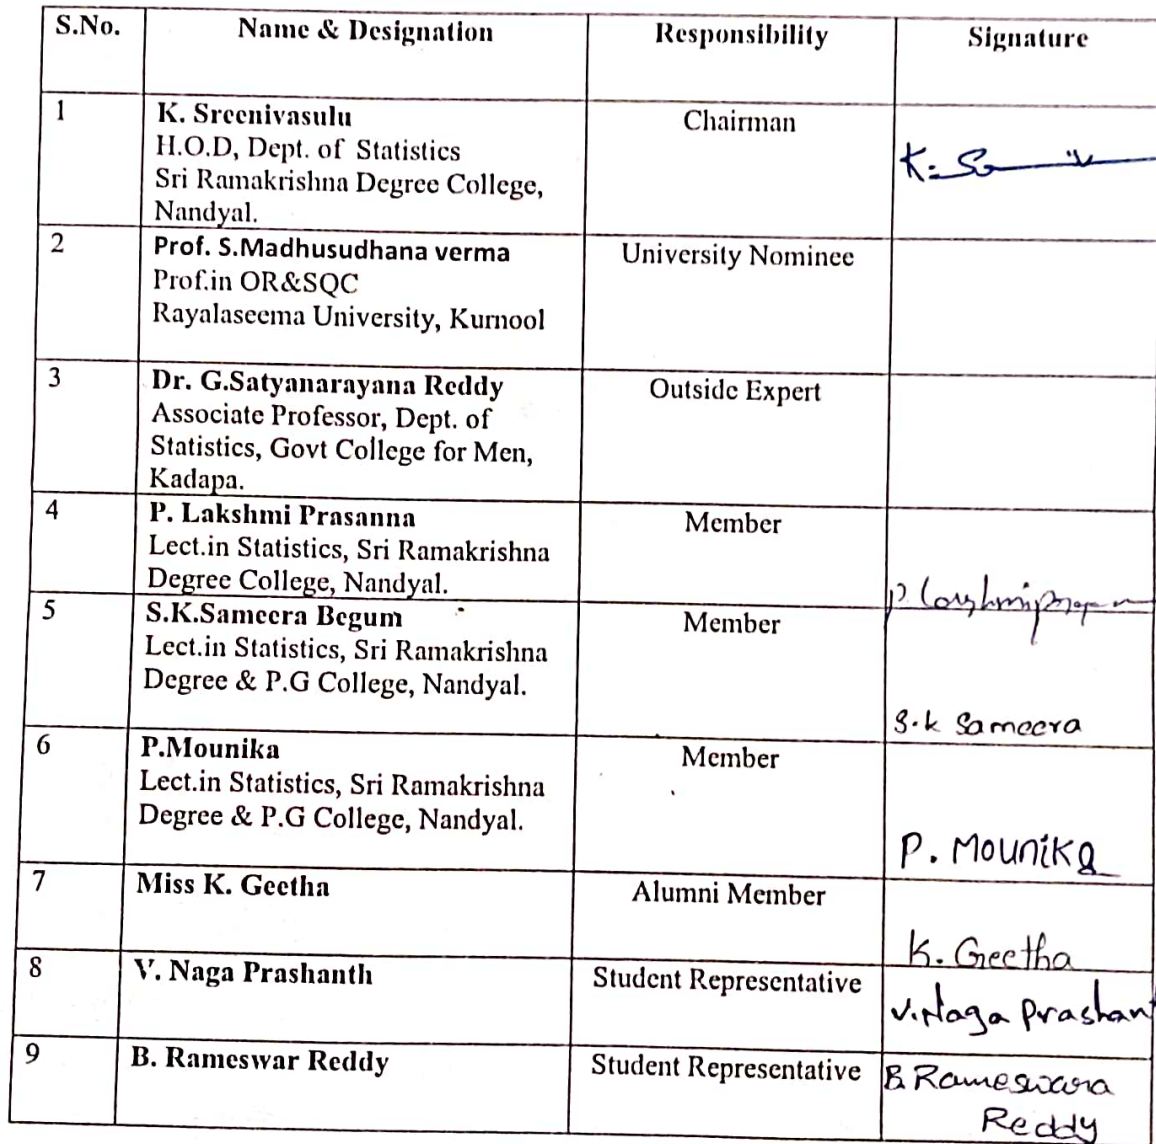 S.No. Name & Designation Responsibility Signature
1 K. Sreenivasulu Chairman
H.O.D, Dept. of Statistics
Sri Ramakrishna Degree College,
Nandyal.
2 Prof. S.Madhusudhana verma University Nominee
Prof.in OR&SQC
Rayalaseema University, Kurnool
3 Dr. G.Satyanarayana Reddy Outside Expert
Associate Professor, Dept. of
Statistics, Govt College for Men,
Kadapa.
4 P. Lakshmi Prasanna Member
Lect.in Statistics, Sri Ramakrishna
Degree College, Nandyal.
5 S.K.Sameera Begum Member
Lect.in Statistics, Sri Ramakrishna
Degree & P.G College, Nandyal.
S.k Sameera
6 P.Mounika Member
Lect.in Statistics, Sri Ramakrishna
Degree & P.G College, Nandyal.
P. Mounika
7 Miss K. Geetha Alumni Member
K. Geetha
8 V. Naga Prashanth Student Representative
V.Naga Prashant
9 B. Rameswar Reddy Student Representative B. Rameswara
Reddy